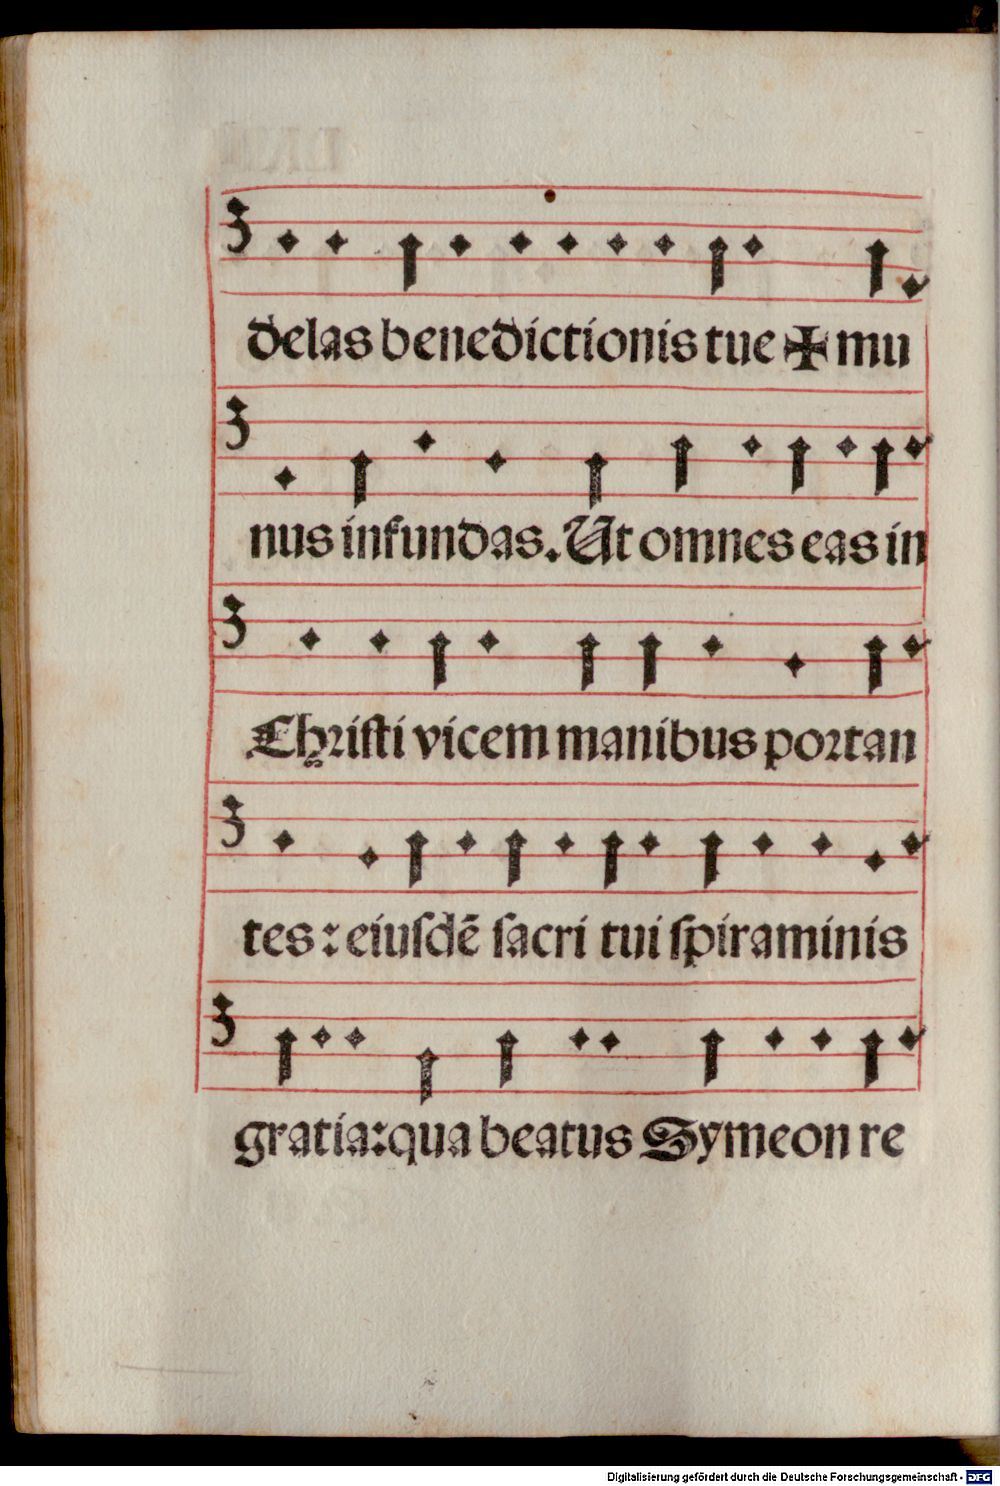 delas benedictionis tue ✠ mu
nus infundas. Ut omnes eas in
Christi vicem manibus portan
tes : eiusdē sacri tui spiraminis
gratia: qua beatus Symeon re
Digitalisierung gefördert durch die Deutsche Forschungsgemeinschaft - DFG